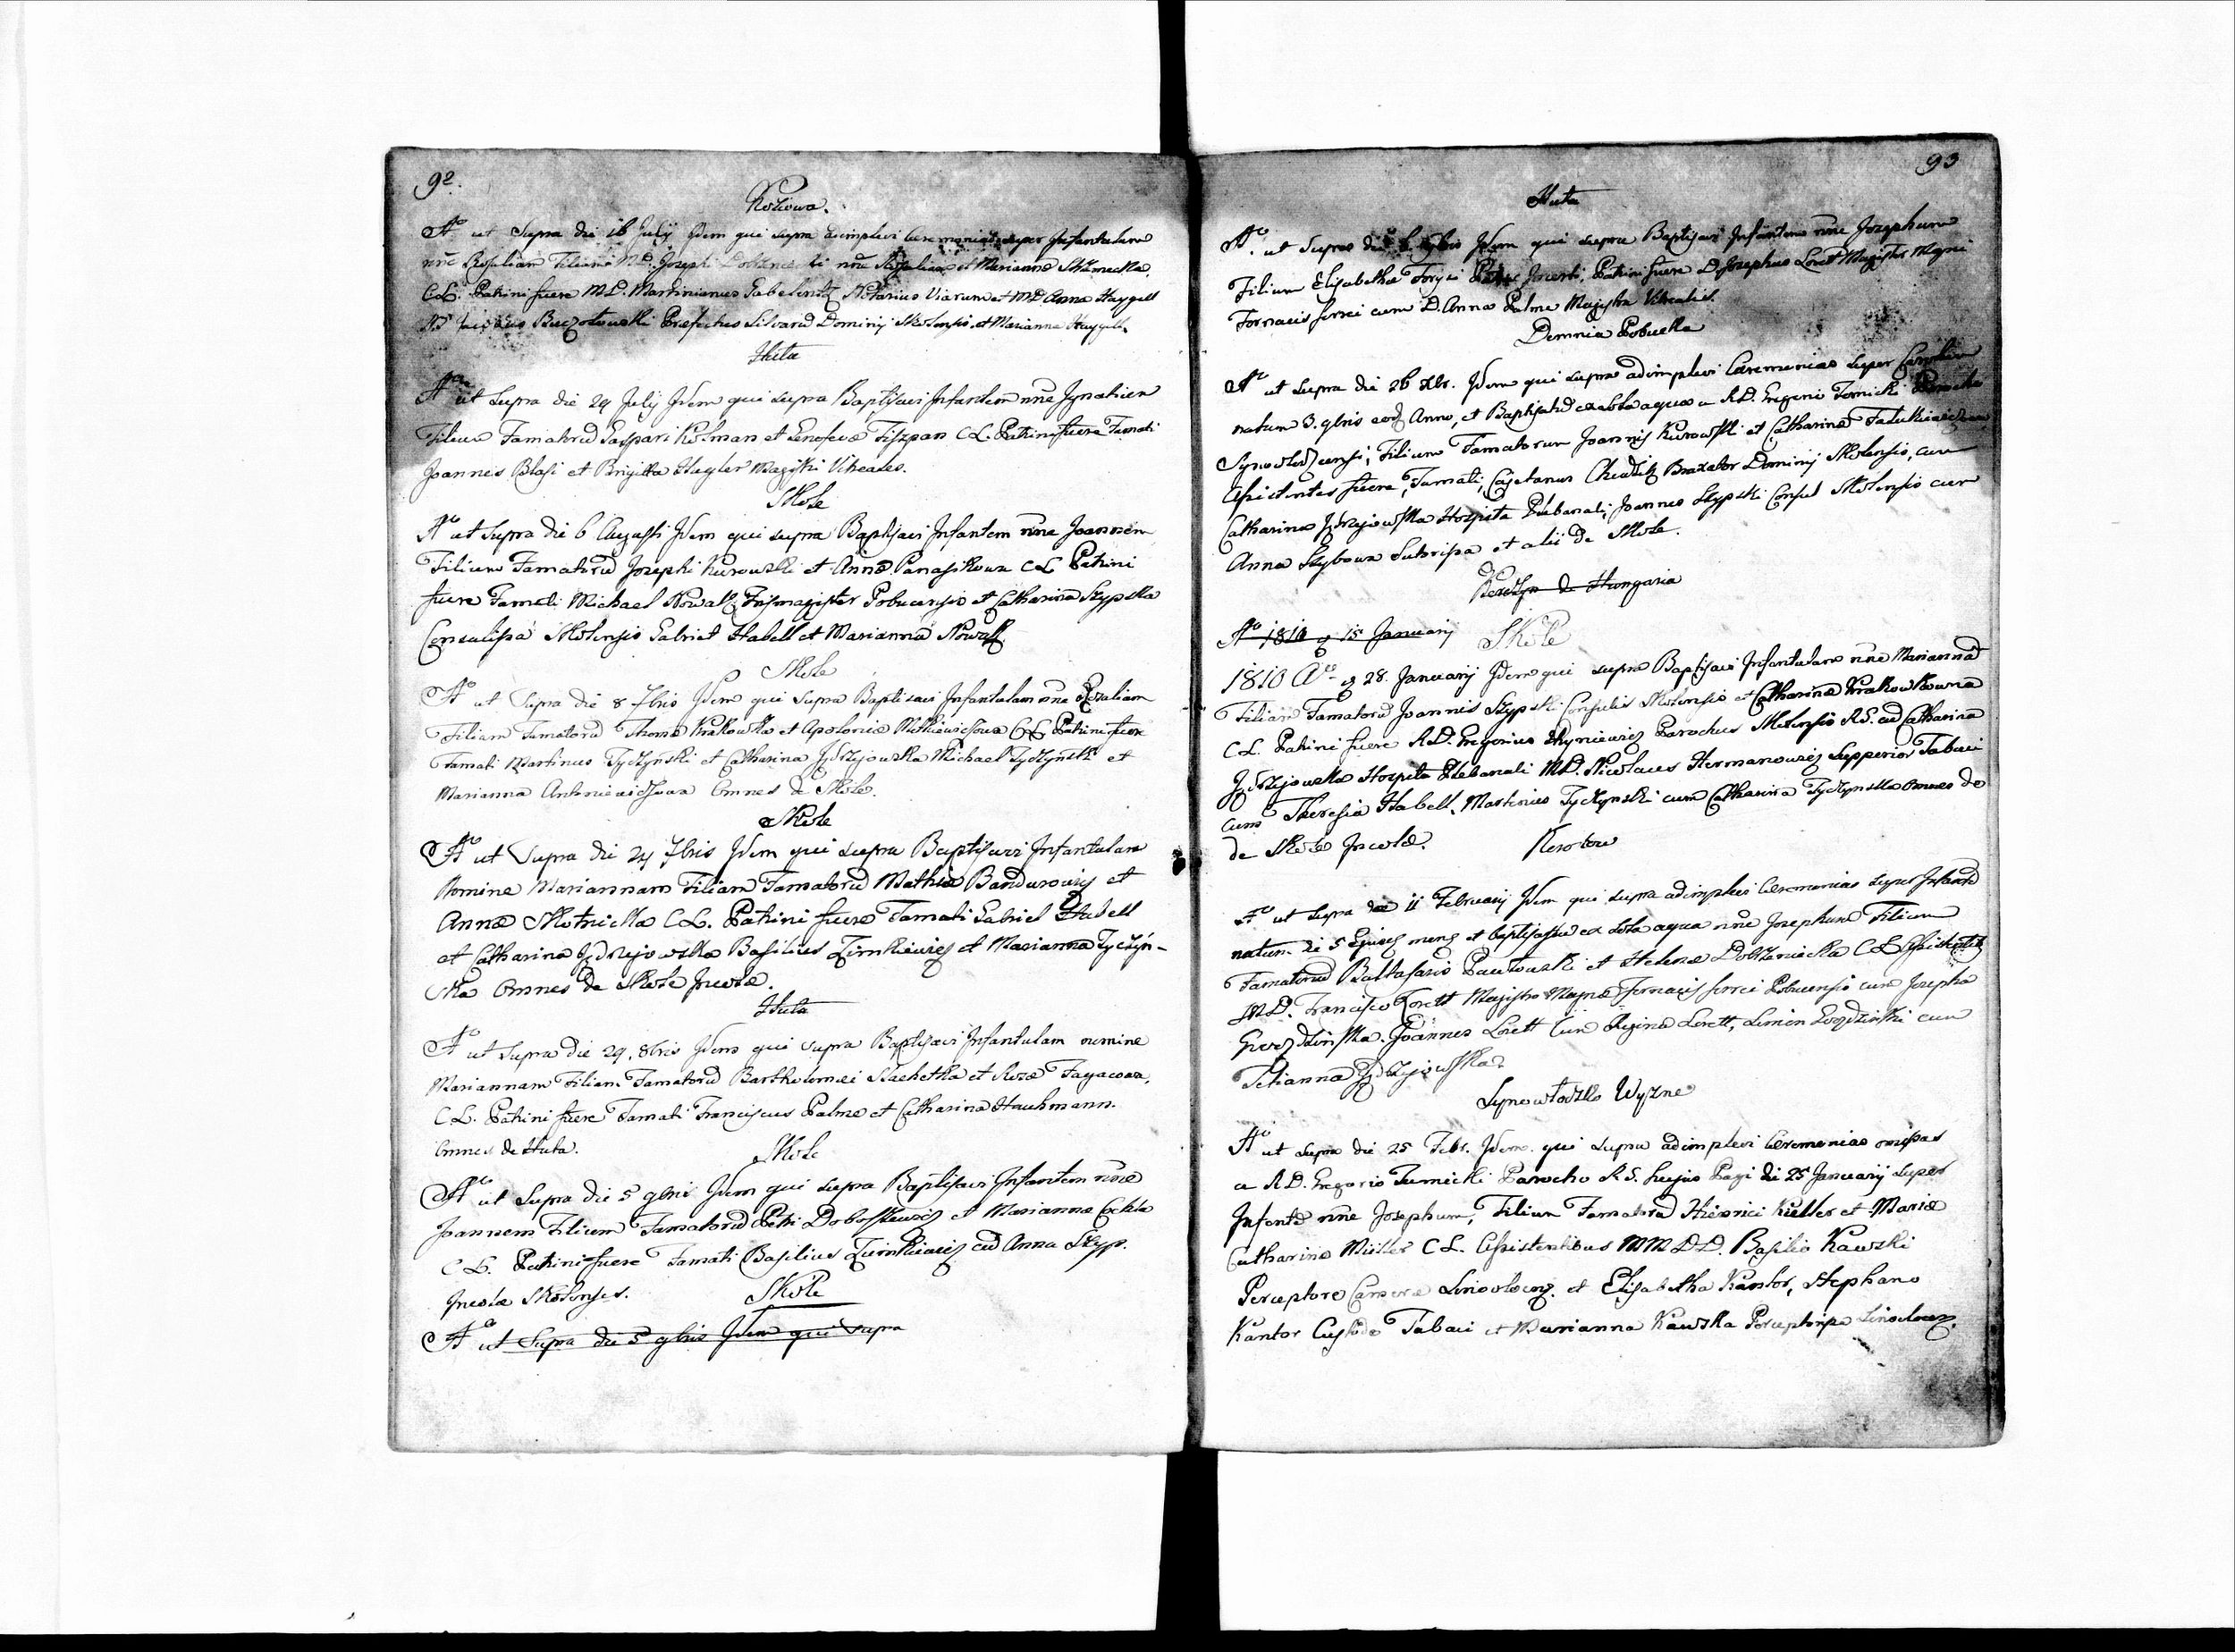 92.
Koziowa.
Ao ut Supra die 16 July Idem qui supra adimplevi Ceremonias super Infantulam
nne Rosaliam Filiam MD. Josephi et Marianna
CL. Patrini fuere MD. Martinianus Notarius Viarum et MD Anna Haygell
Buczołowski Praefectus Silvarū Dominij Skolensis et Marianna Haygell
Huta
Ao ut Supra die 29 July Idem qui supra Baptisavi Infantem nne Ignatium
Filium Famatorū Gaspari Kolman et Genofevæ Fiszpan CL. Patrini fuere Famati
Joannes Blasi et Brigitta Hegler Magistri Vitreales.
Skole
Ao ut Supra die 6 Augusti Idem qui supra Baptisavi Infantem nne Joannem
Filium Famatorū Josephi Kurowski et Annæ Panasikowa CL Patrini
fuere Famati Michael Nowak Pobucensis et Catharina Szypska
Consulissa Skolensis Gabriel Habell et Marianna Nowak
Skole
Ao ut Supra die 8 7bris Idem qui supra Baptisavi Infantulam nne Rozaliam
Filiam Famatorū Thomæ Krakowka et Apoloniæ CL Patrini fuere
Famati Martinus Tyczynski et Catharina Jędrzejowska Michael Tyczynski et
Marianna Antoniewiczowa Omnes de Skole.
Skole
Ao ut Supra die 24 7bris Idem qui supra Baptisavi Infantulam
Nomine Mariannam Filiam Famatorū Mathiæ Bandurowicz et
Annæ Skotnicka CL. Patrini fuere Famati Gabriel Habell
et Catharina Jędrzejowska Basilius Zimkiewicz et Marianna Tyczyn-
ska Omnes de Skole Incolæ.
Huta
Ao ut Supra die 29. 8bris Idem qui supra Baptisavi Infantulam nomine
Mariannam Filiam Famatorū Bartholomæi Stachetka et Rosæ
CL. Patrini fuere Famati Franciscus Palme et Catharina Hauhmann.
Omnes de Huta.
Skole
Ao ut Supra die 5 9bris Idem qui supra Baptisavi Infantem nne
Joannem Filium Famatorū Petri et Marianna
CL. Patrini fuere Famati Basilius Zimkiewicz cū Anna Szyp.
Incolæ Skolenses.
Skole
Ao ut Supra die 5 9bris Idem qui supra
93
Huta
Ao ut Supra die 9bris Idem qui supra Baptisavi Infantem nne Josephum
Filium Elisabethæ Patris Incerti. Patrini fuere D. Josephus Lorett Magister Magni
Fornacis ferrei cum D. Anna Palme Magistra Vitrealis.
Demnia Pobucka
Ao ut Supra die 26 Xbr. Idem qui supra adimplevi Ceremonias super
natum 3. 9bris eodz Anno, et Baptisatū ex sola aqua a RD. Gregorio Tomicki Parocho
Filium Famatorum Joannis Kurowski et Catharinæ
Assistentes fuere, Famati, Cajetanus Braxator Dominij Skolensis, cum
Catharina Jędrzejowska Hospita Plebanali, Joannes Szypski Consul Skolensis cum
Anna Szybowa Sutorissa et alii de Skole.
de Hungaria
Ao 1810 15 January Skole
1810 Ao 28. January Idem qui supra Baptisavi Infantulam nne Mariannā
Filiam Famatorū Joannis Szypski Consulis Skolensis et Catharinæ Krakowkowna
CL. Patrini fuere RD. Gregorius Hyniewicz Parochus Skolensis RS. cū Catharina
Jędrzejowska Hospita Plebanali MD. Nicolaus Hermanowicz Supperior Tabaci
cum Theresia Habell. Martinus Tyczynski cum Catharina Tyczynska omnes de
de Skole Incolæ.
Ao ut Supra die 11 February Idem qui supra adimplevi Ceremonias super Infante
natum die 5 Ejusdz mens et baptisatū ex sola aqua nne Josephum Filium
Famatorū Baltasaris Pawłowski et Helenæ Dobrzaniecka CL Assistentib
MD. Francisco Lorett Magistro Magnæ Fornacis ferrei Pobucensis cum Josepha
Gwozdzinska. Joannes Lorett cum Regina Lorett, Simon Gwozdzinski cum
Tetianna Jędrzejowska.
Synowłodzko Wyzne
Ao ut Supra die 25 Febr. Idem qui supra adimplevi Ceremonias omissas
a RD. Gregorio Tumicki Parocho R S. hujus Pagi die 25 January super
Infante nne Josephum, Filium Famatorū Henrici Kuller et Mariæ
Catharinæ Müller CL. Assistentibus MM DD. Basilio Kawski
Perceptore Cameræ et Elisabetha Kantor, Stephano
Kantor Custode Tabaci et Marianna Kawska Perceptorissa